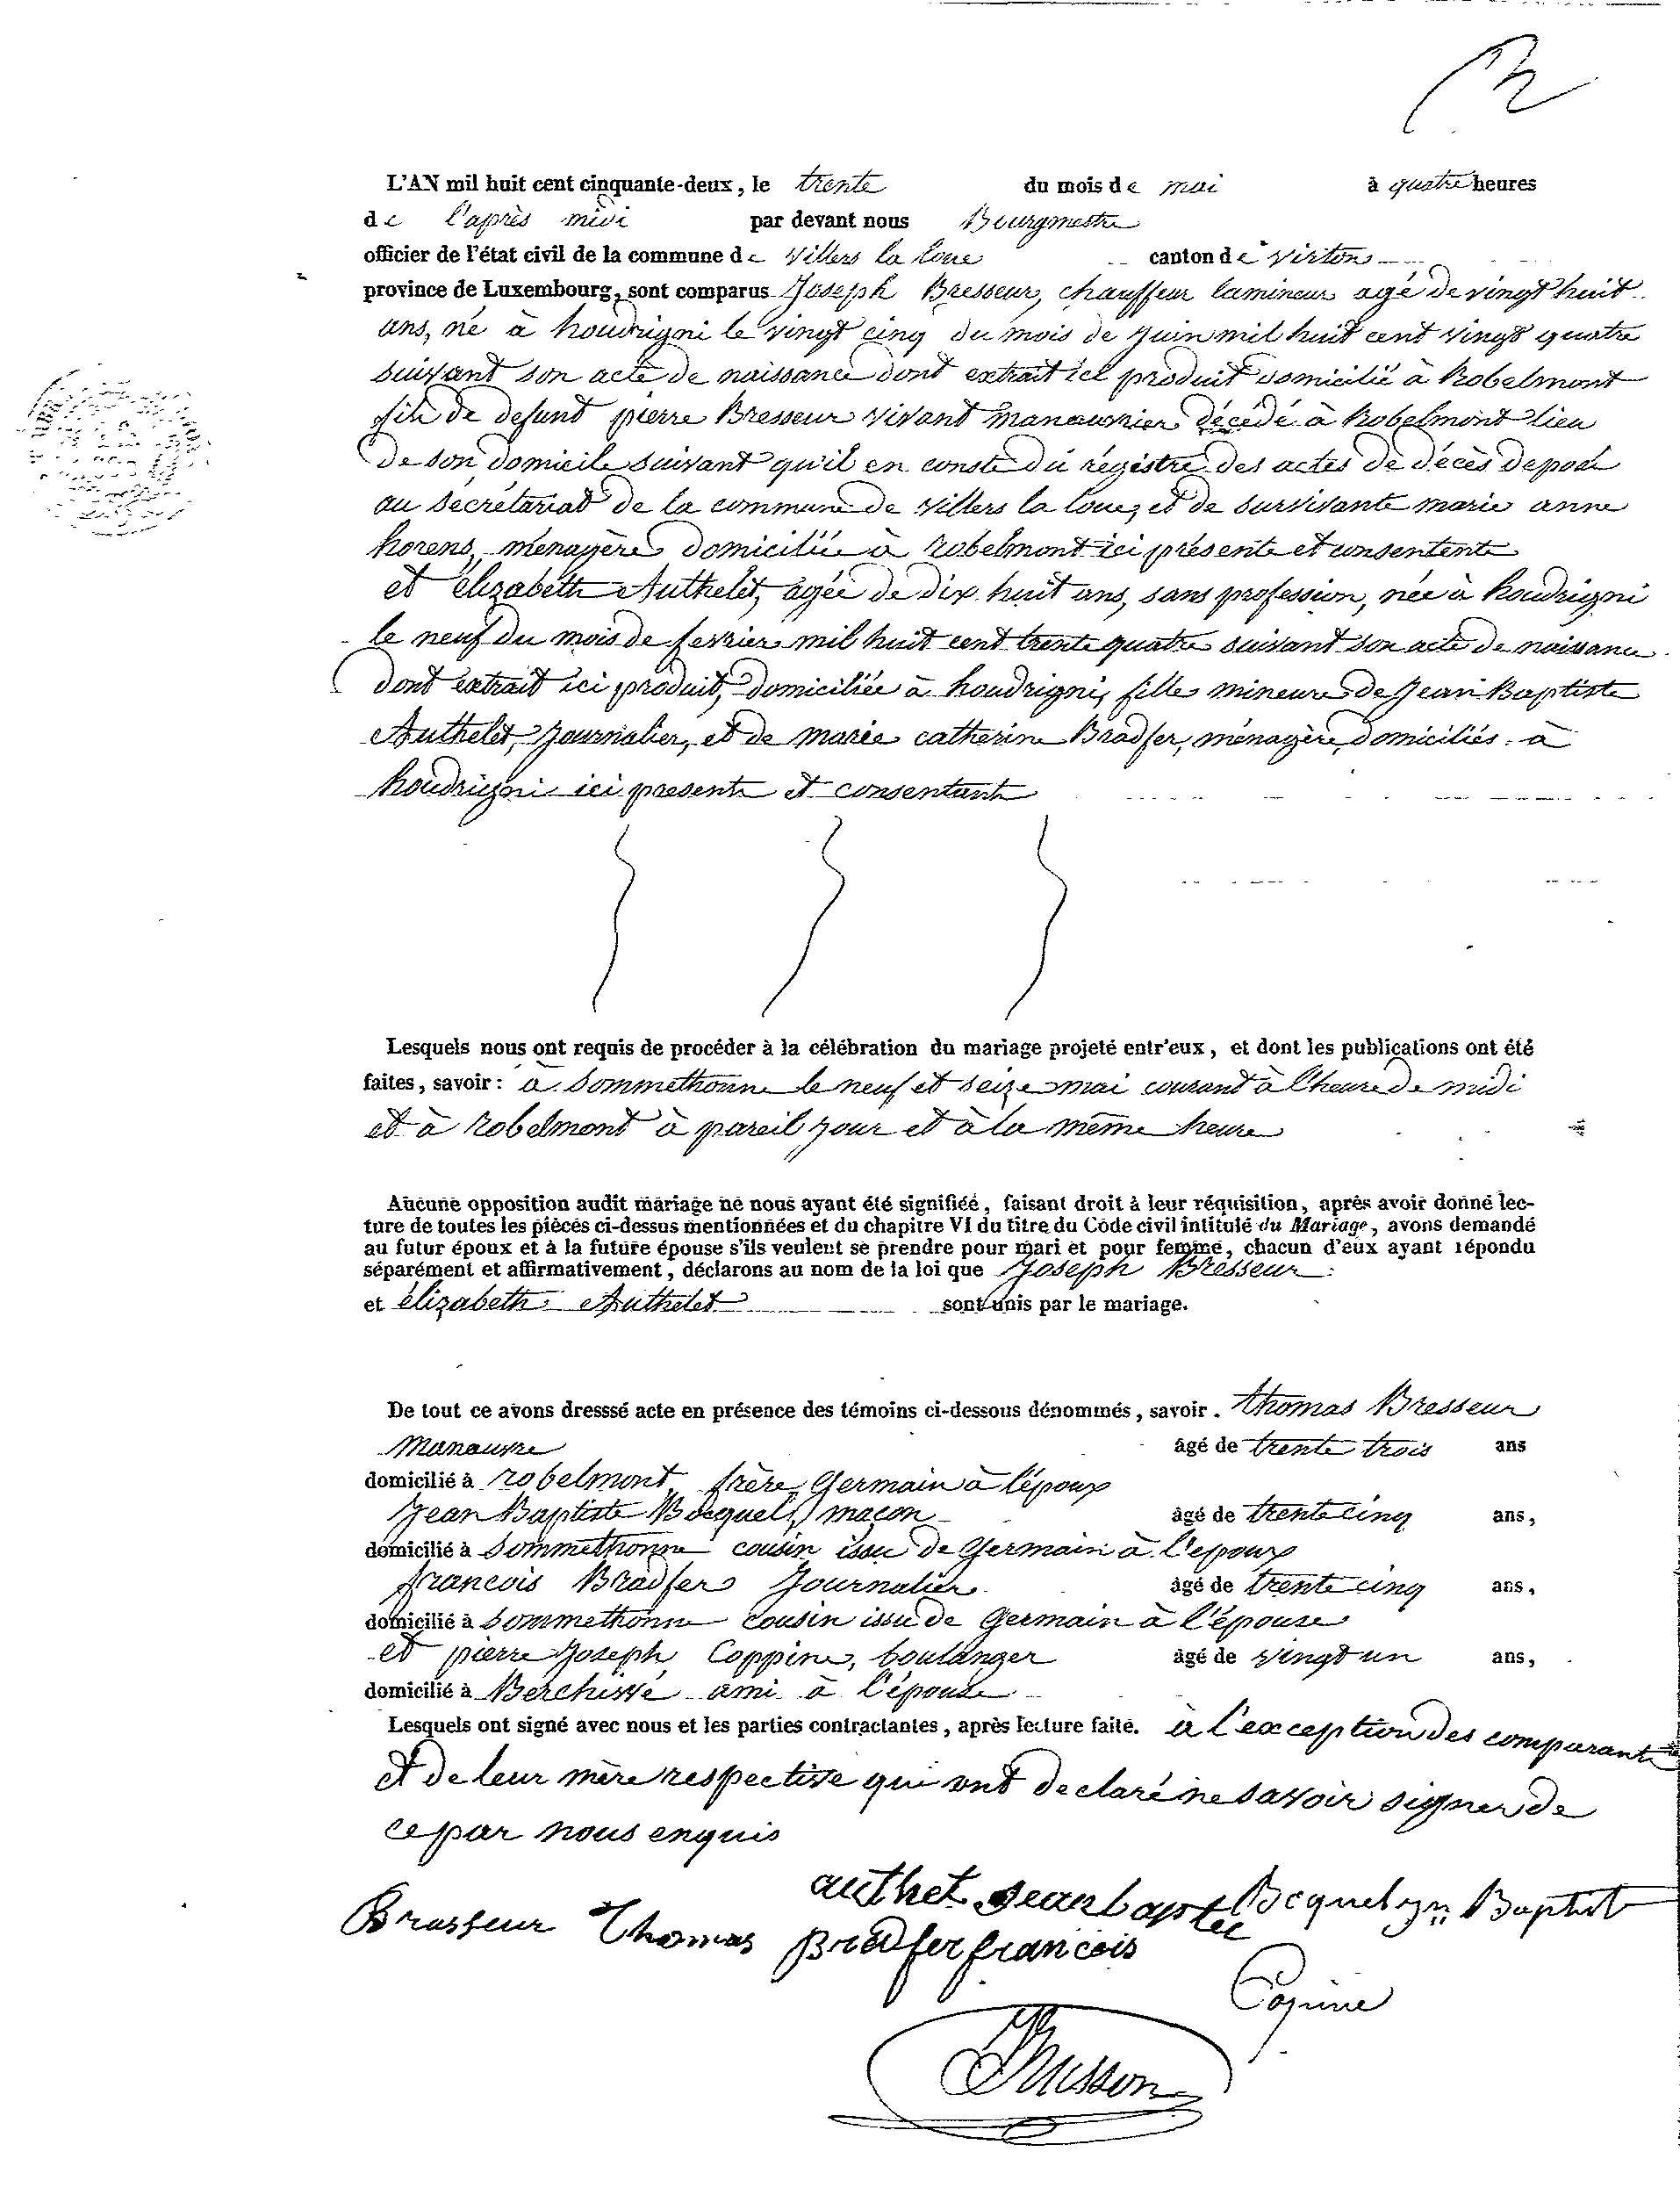 L'AN mil huit cent cinquante-deux, le trente du mois de mai à quatre heures
de l'après midi par devant nous Bourgmestre
officier de l'état civil de la commune de Villers la loue canton de Virton
province de Luxembourg, sont comparus Joseph Bresseur, chauffeur lamineur agé de vingt huit
ans, né à houdrigni le vingt cinq du mois de Juin mil huit cent vingt quatre
suivant son acte de naissance dont extrait ici produit domicilié à Robelmont
fils de defunt pierre Bresseur vivant manouvrier décédé à Robelmont lieu
de son domicile suivant qu'il en conste du régistre des actes de décès deposé
au sécrétariat de la commune de Villers la loue, et de survivante marie anne
horens, ménagère domiciliée à robelmont ici présente et consentente
et élizabeth Authelet, agée de dix huit ans, sans profession, née à houdrigni
le neuf du mois de fevrier mil huit cent trente quatre suivant son acte de naissance
dont extrait ici produit, domiciliée à houdrigni, fille mineure de Jean Baptiste
Authelet, Journalier, et de marie catherine Bradfer, ménagère domiciliés à
houdrigni ici presente et consentante
Lesquels nous ont requis de procéder à la célébration du mariage projeté entr'eux, et dont les publications ont été
faites, savoir : à Sommethonne le neuf et seize mai courant à l'heure de midi
et à robelmont à pareil jour et à la même heure
Aucune opposition audit mariage ne nous ayant été signifiée, faisant droit à leur réquisition, après avoir donné lec-
ture de toutes les pièces ci-dessus mentionnées et du chapitre VI du titre du Code civil intitulé du Mariage, avons demandé
au futur époux et à la future épouse s'ils veulent se prendre pour mari et pour femme, chacun d'eux ayant répondu
séparément et affirmativement, déclarons au nom de la loi que Joseph Bresseur
et élizabeth Authelet sont unis par le mariage.
De tout ce avons dresssé acte en présence des témoins ci-dessous dénommés, savoir. thomas Bresseur
Manouvre âgé de trente trois ans
domicilié à robelmont, frère Germain à l'époux
Jean Baptiste Bocquel, maçon âgé de trente cinq ans,
domicilié à Sommethonne cousin issu de Germain à l'epoux
francois Bradfer Journalier âgé de trente cinq ans,
domicilié à Sommethonne cousin issu de Germain à l'épouse
et pierre Joseph Coppine, boulanger âgé de vingt un ans,
domicilié à Berchivé ami à l'épouse
Lesquels ont signé avec nous et les parties contractantes, après lecture faite. à l'exception des comparants
et de leur mère respective qui ont declaré ne savoir signer de
ce par nous enquis
authet Jean baptee Bcquel Jn Baptist
Brasseur Thomas Bradfer francois
Copine
Husson